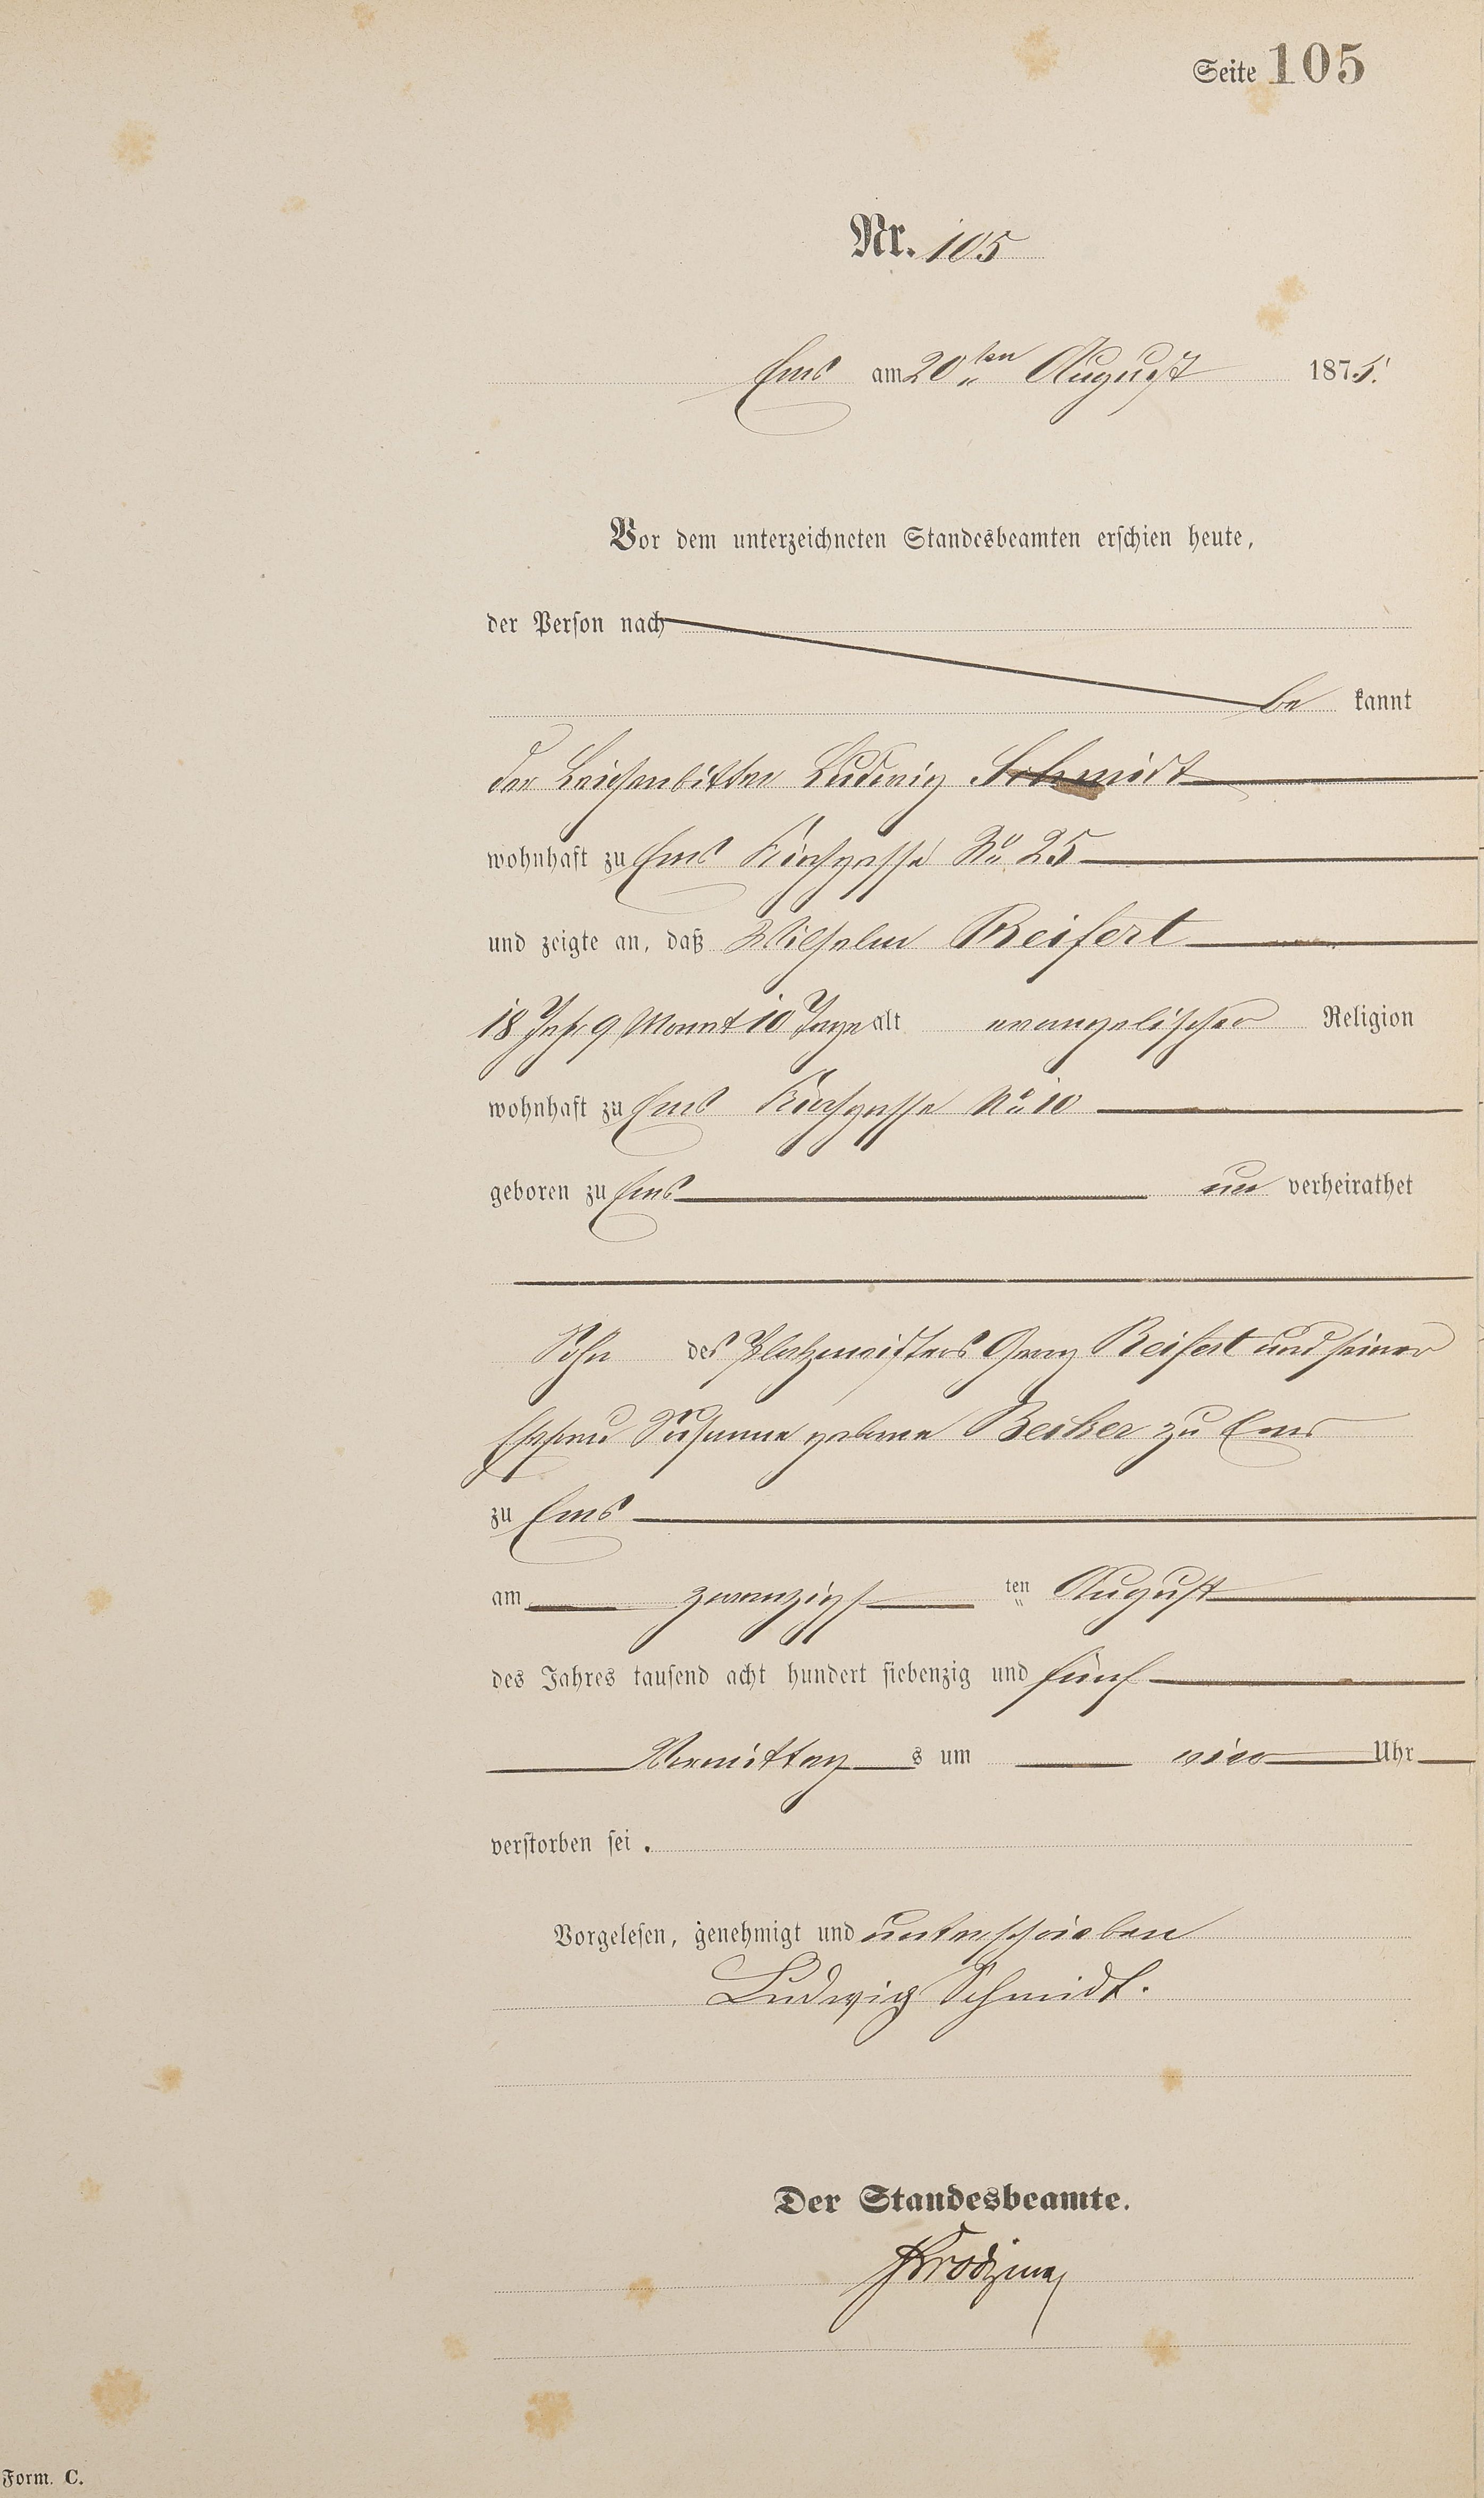 Seite 105
Nr. 105
Ems am 20ten August 1875.
Vor dem unterzeichneten Standesbeamten erschien heute,
der Person nach
be kannt
der Leichenbitter Ludwig Schmidt
wohnhaft zu Ems Kirchgasse No 25
und zeigte an, daß Wilhelm Reifert
18 Jahr 9 Monat 10 Tage alt evangelischer Religion
wohnhaft zu Ems Kirchgasse No 10
geboren zu Ems un verheirathet
Sohn des Platzmeisters Georg Reifert und seiner
Ehefrau Susanna geborne Becker zu Ems
zu Ems
am zwanzigs ten August
des Jahres tausend acht hundert siebenzig und fünf
Vormittag s um vier Uhr
verstorben sei.
Vorgelesen, genehmigt und unterschrieben
Ludwig Schmidt.
Der Standesbeamte.
Form. C.